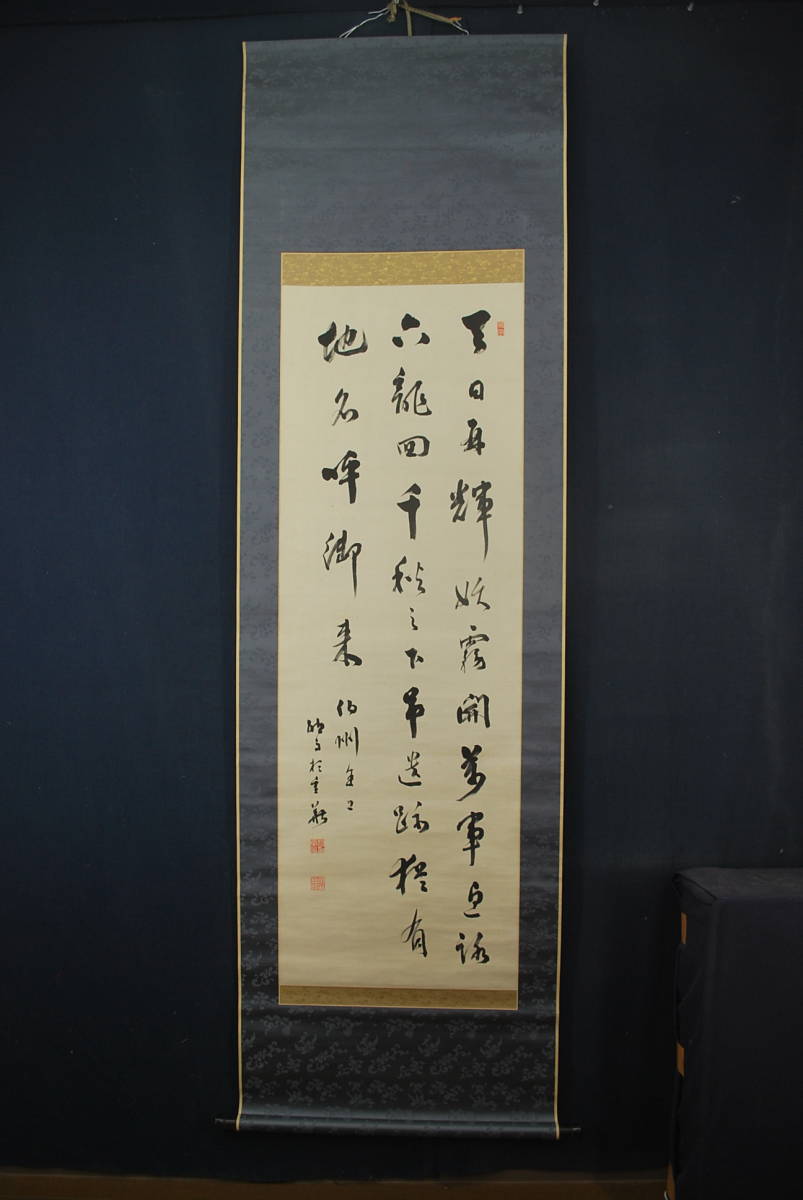 天日再輝妖霧開萬軍迎護
六龍回千秋之下弔遺跡猶有
地名呼御来
伯州